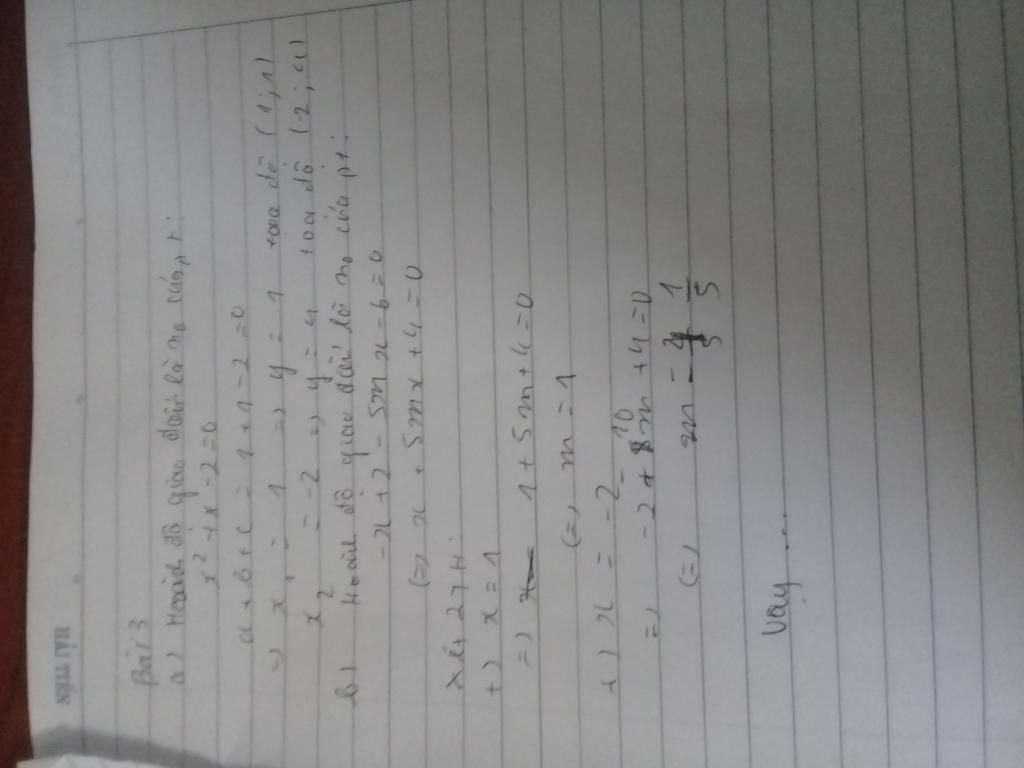 HẢI TIẾN
Bài 3
a) Hoành độ giao điểm là no của pt:
x² + x - 2 = 0
a + b + c = 1 + 1 - 2 = 0
=> x₁ = 1 => y = 1 toạ độ (1; 1)
x₂ = -2 => y = 4 toạ độ (2; 4)
b) Hoành độ giao điểm là no của pt:
-x + 2 - 5m x - 6 = 0
(=) x + 5m x + 4 = 0
Xét 2TH
+) x = 1
=) 1 + 5m + 4 = 0
(=) m = 1
+) x = -2
=) -2 - 10m + 4 = 0
(=) m = 1/5
Vậy ...